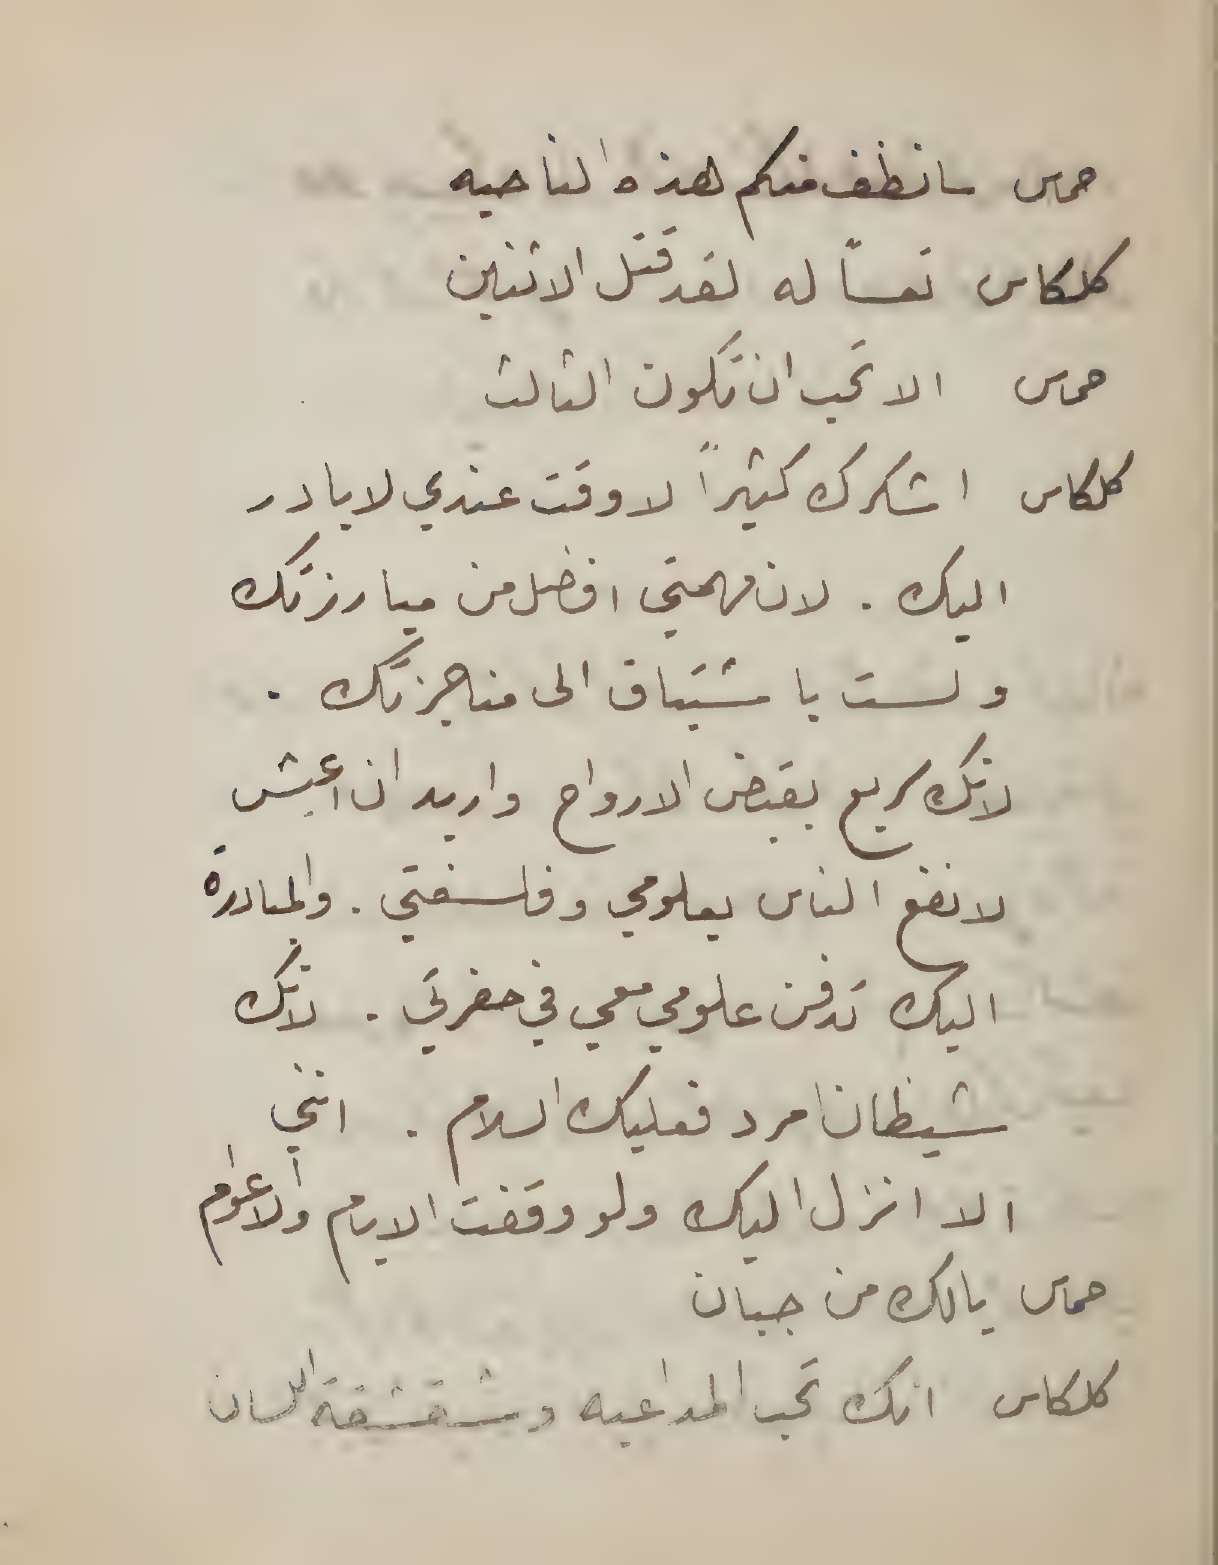 حماس سانظف منكم هذه الناحيه
كلكاس تعساً له لقد قتل الاثنين
حماس الا تحب ان تكون الثالث
كلكاس اشكرك كثيراً لا وقت عندي لابادر
اليك . لان مهمتي افضل من مبارزتك
ولست بامشتاق الى مناجزتك .
لانك سريع بقبض الارواح واريد ان اعيش
لانفع الناس بعلومي وفلسفتي . والمبادرة
اليك تدفن علومي معي في حفرتي . لانك
شيطان امرد فعليك السلام . انني
الا انزل اليك ولو وقفت الايام والاعوام
حماس يالك من جبان
كلكاس انك تحب المداعبه وشقشقة اللسان